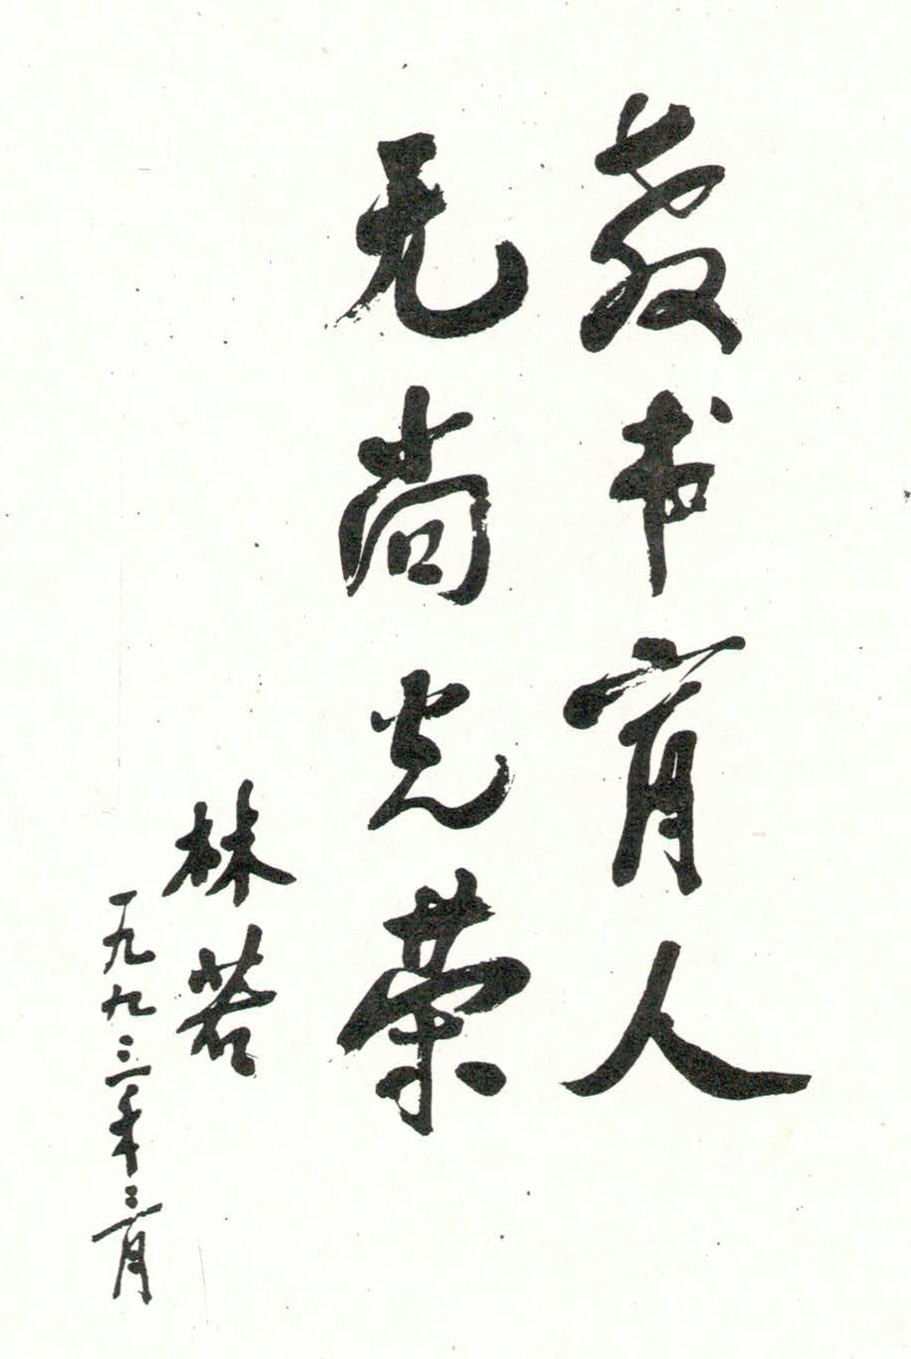 教书育人
无尚光荣
林若
一九九三年三月